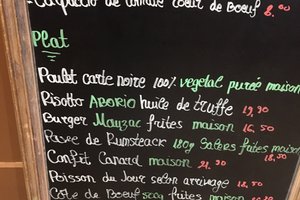 Carpaccio de tomate coeur de Boeuf 8.00
Plat
Poulet carte noire 100% vegetal purée maison
Risotto ABORIO huile de truffe 19,90
Burger Mauzac frites maison 16,50
Pavee de Rumsteack 180g Salees frites maison 18,50
Confit Canard maison 21.90
Poisson du Jour selon arrivage
Côte de Boeuf frites maison